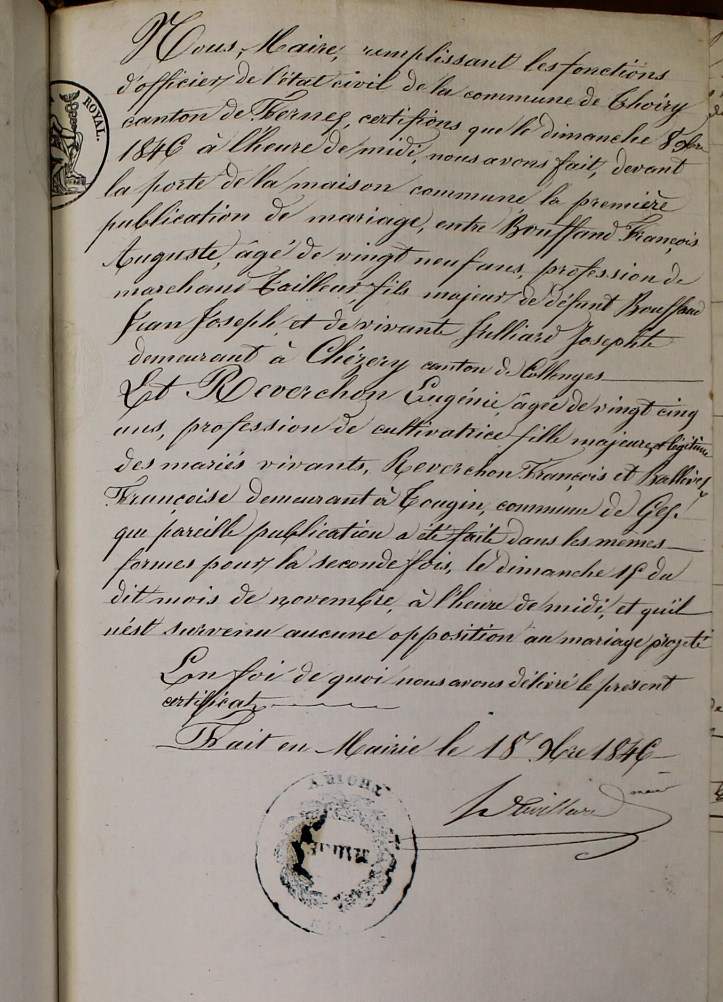 ROYAL.
Nous, Maire, remplissant les fonctions
d'officier de l'état civil de la commune de Thoiry
canton de Fernex, certifions que le dimanche 8 9bre
1846 à l'heure de midi, nous avons fait, devant
la porte de la maison commune la première
publication de mariage, entre Bouffand François
Auguste, âgé de vingt neuf ans, profession de
marchand tailleur, fils majeur de défunt Bouffand
Jean Joseph et de vivante Julliard Josephte
demeurant à Chézery canton de Collonges
Et Reverchon Eugénie, âgée de vingt cinq
ans, profession de cultivatrice fille majeure et légitime
des mariés vivants, Reverchon François et
Françoise demeurant à Tougin, commune de Gex.
que pareille publication a été faite dans les mêmes
formes pour la seconde fois, le dimanche 15 du
dit mois de novembre, à l'heure de midi, et qu'il
n'est survenu aucune opposition au mariage projeté
En foi de quoi nous avons délivré le présent
certificat
Fait en Mairie le 18 9bre 1846
maire
MAIRIE